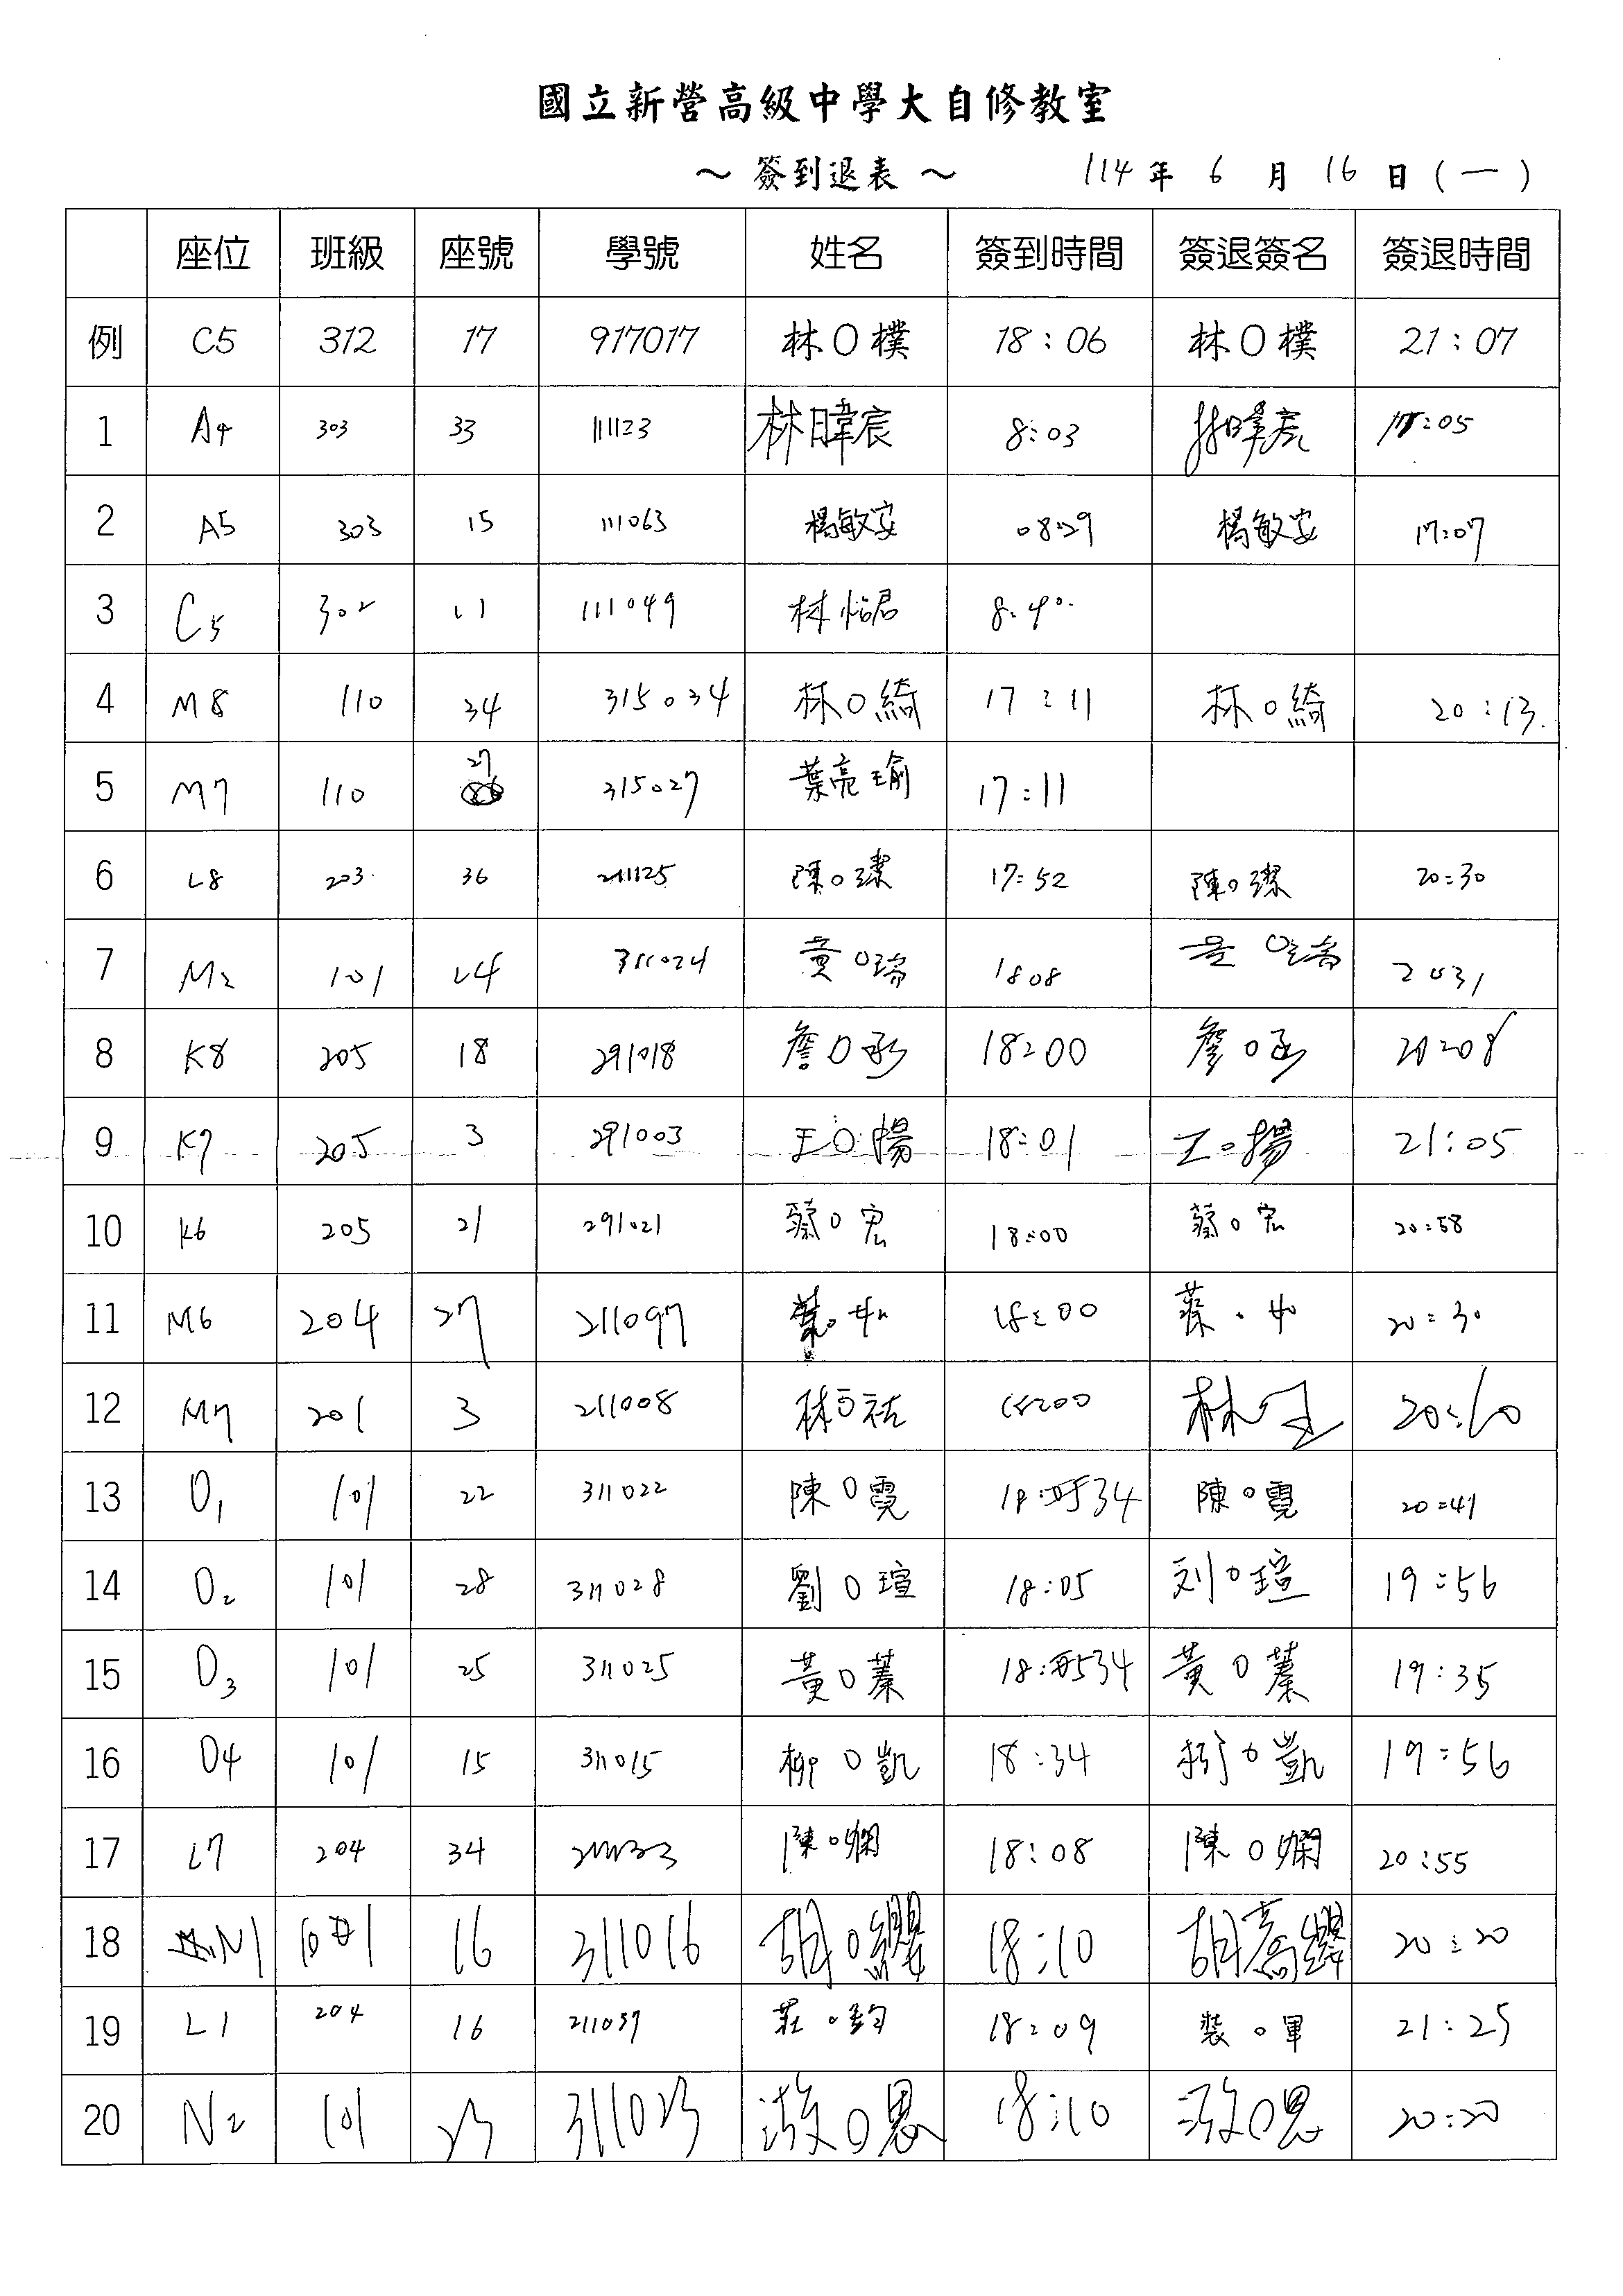 國立新營高級中學大自修教室
～ 簽到退表 ～ 114 年 6 月 16 日 (一)
座位 班級 座號 學號 姓名 簽到時間 簽退簽名 簽退時間
例 C5 312 17 917017 林O樸 18:06 林O樸 21:07
1 A4 303 33 111123 林暐宸 8:03 林暐宸 17:05
2 A5 303 15 111063 楊敏安 08:29 楊敏安 17:07
3 C5 302 21 111049 林怡君 8:40
4 M8 110 34 315034 林O綺 17:11 林O綺 20:13
5 M7 110 27 315027 葉亮瑜 17:11
6 L8 203 36 211125 陳O潔 17:52 陳O潔 20:30
7 M2 101 24 311024 黃O瑞 1808 2031
8 K8 205 18 291018 詹O承 18:00 詹O承
9 K7 205 3 291003 王O揚 18:01 王O揚 21:05
10 K6 205 21 291021 蔡O宏 18:00 蔡O宏 20:58
11 M6 204 27 211097 18:00 20:30
12 M7 201 3 211008 林O祐 18:00 林 20:10
13 O1 101 22 311022 陳O霓 18:34 陳O霓 20:41
14 O2 101 28 311028 劉O瑄 18:05 刘O瑄 19:56
15 O3 101 25 311025 黃O蓁 18:34 黃O蓁 19:35
16 O4 101 15 311015 柳O凱 18:34 柳O凱 19:56
17 L7 204 34 陳O嫻 18:08 陳O嫻 20:55
18 N1 101 16 311016 胡O繹 18:10 胡喬繹 20:20
19 L1 204 16 莊O鈞 18:09 21:25
20 N2 101 23 311023 游O恩 18:10 游O恩 20:20